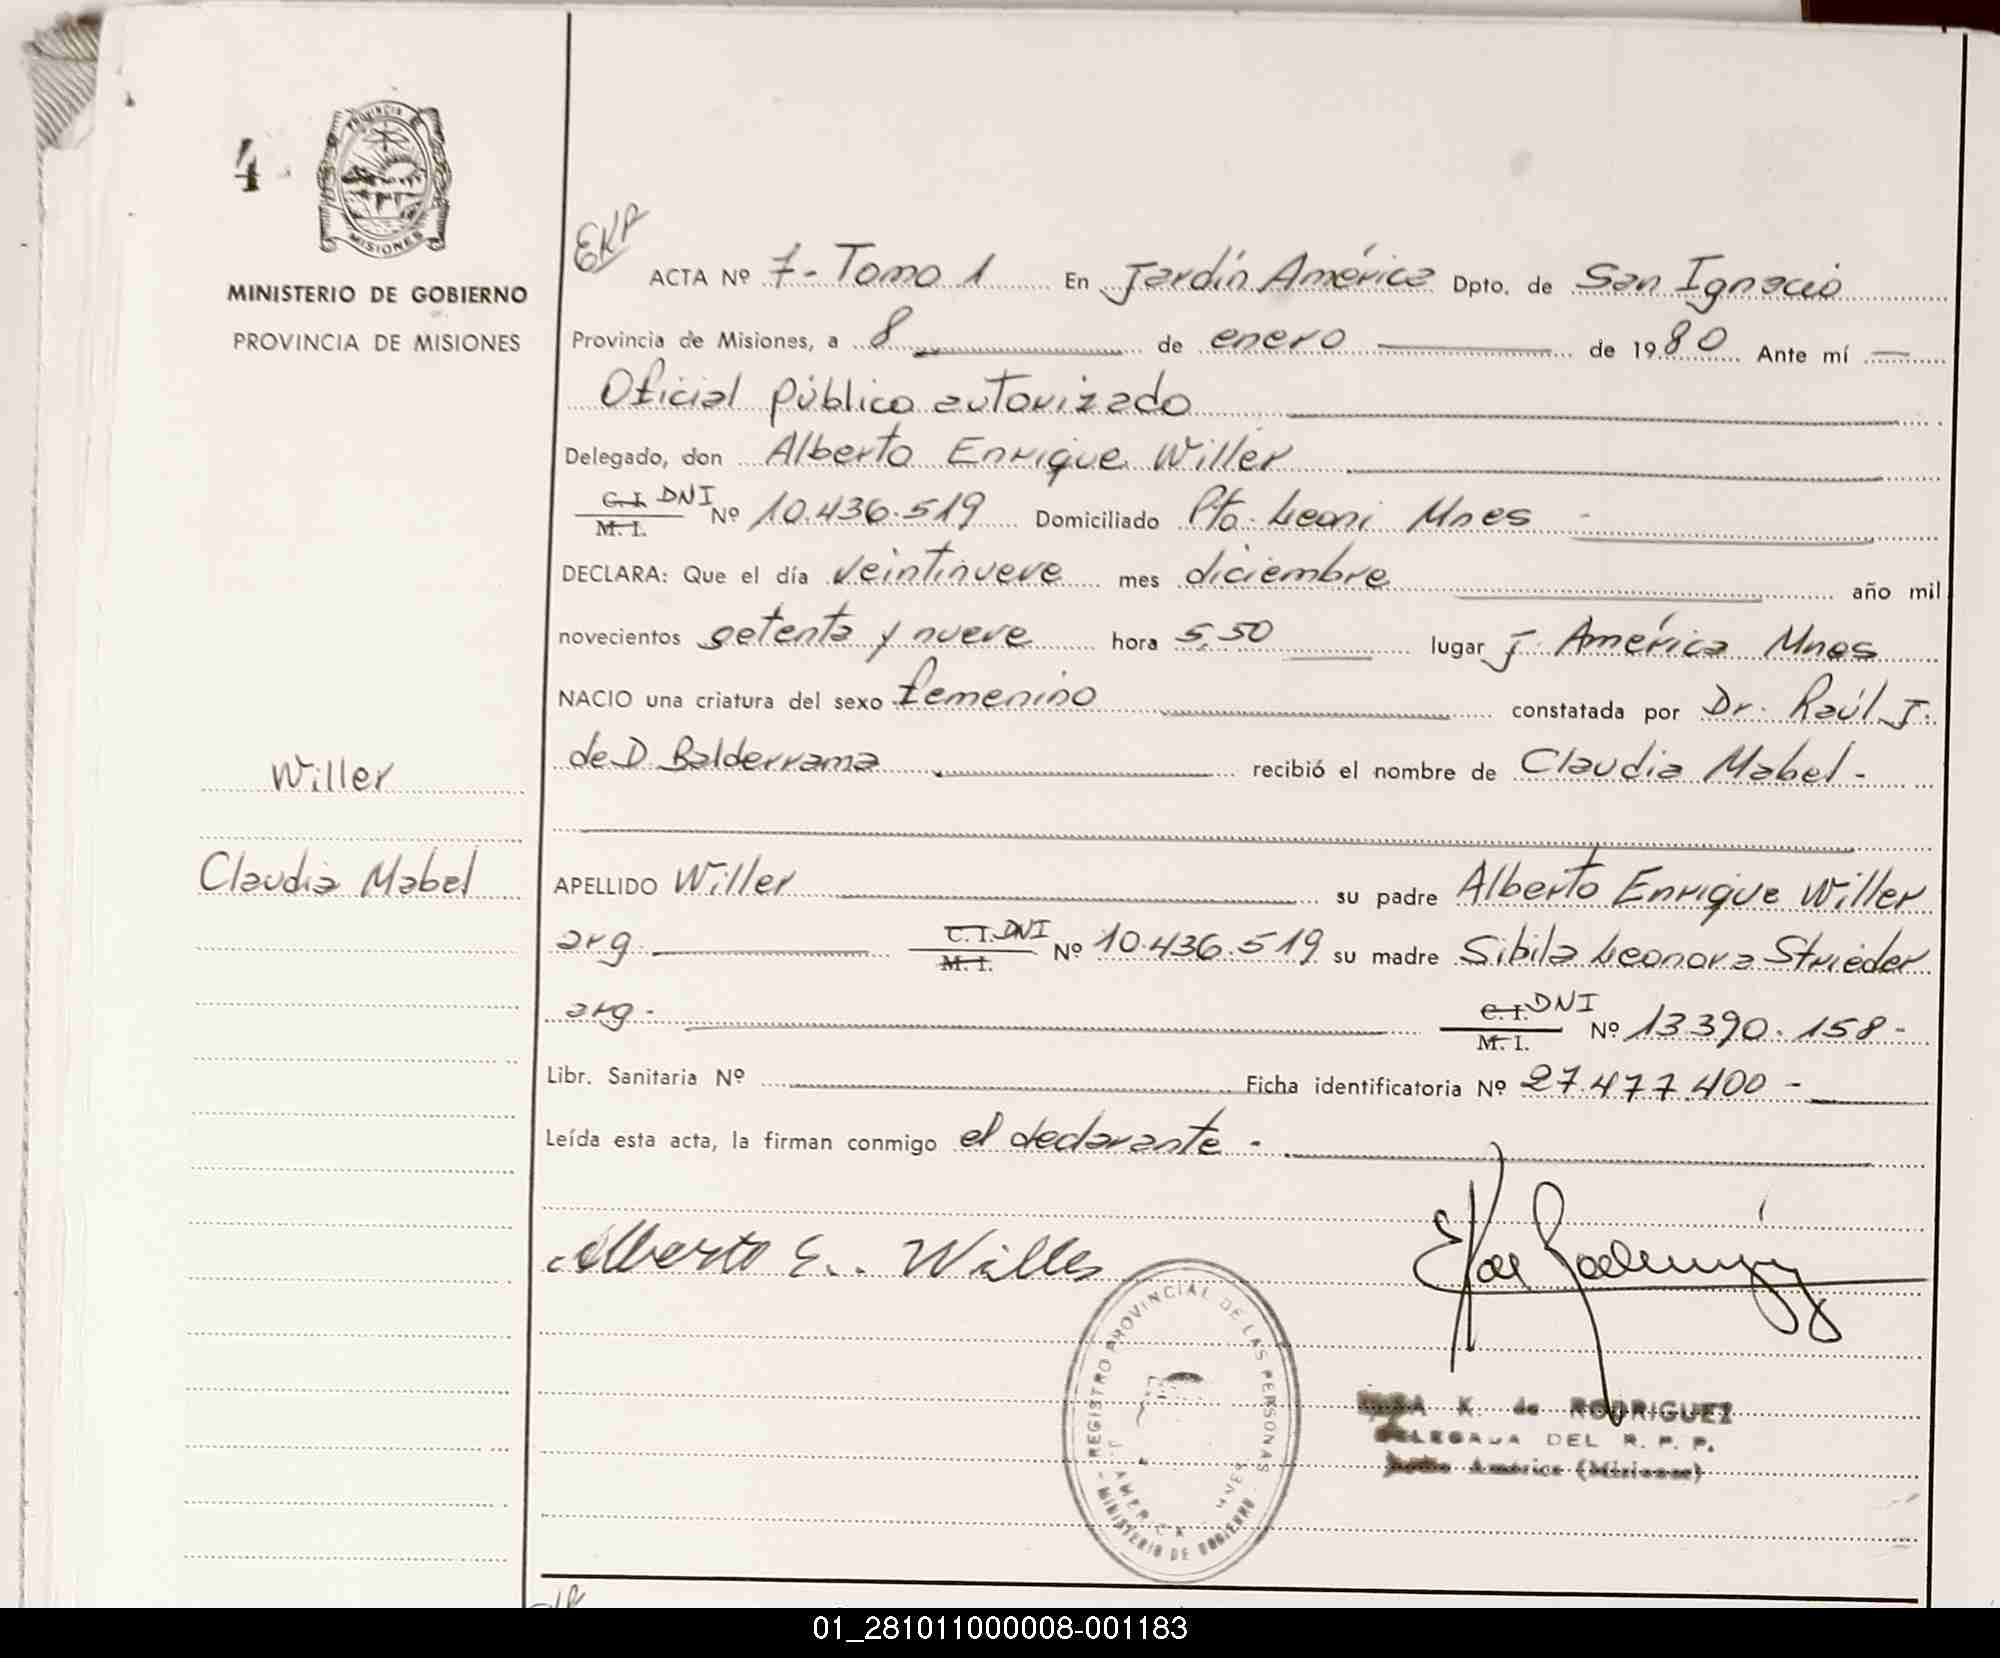 4
PROVINCIA DE
MISIONES
MINISTERIO DE GOBIERNO
PROVINCIA DE MISIONES
EKR
ACTA Nº 7 - Tomo 1 En Jardín América Dpto. de San Ignacio
Provincia de Misiones, a 8 de enero de 1980 Ante mí
Oficial público autorizado
Delegado, don Alberto Enrique Willer
C.I. DNI
M. I. Nº 10.436.519 Domiciliado Pto. Leoni Mnes
DECLARA: Que el día veintinueve mes diciembre año mil
novecientos setenta y nueve hora 5,50 lugar J. América Mnes
NACIO una criatura del sexo femenino constatada por Dr. Raúl J.
de D. Balderrama recibió el nombre de Claudia Mabel -
Willer
Claudia Mabel
APELLIDO Willer su padre Alberto Enrique Willer
arg. C.I. DNI
M. I. Nº 10.436.519 su madre Sibila Leonora Strieder
arg. C.I. DNI
M. I. Nº 13.390.158 -
Libr. Sanitaria Nº Ficha identificatoria Nº 27.477.400 -
Leída esta acta, la firman conmigo el declarante -
Alberto E. Willer
REGISTRO PROVINCIAL DE LAS PERSONAS
J. AMERICA MNES
MINISTERIO DE GOBIERNO
K. de RODRIGUEZ
DELEGADA DEL R. P. P.
Jardín América (Misiones)
01_281011000008-001183